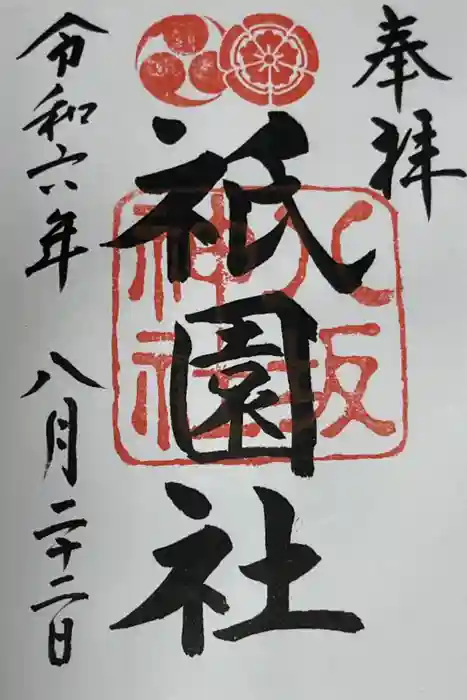 奉拝
八坂
神社
祇園社
令和六年 八月二十二日